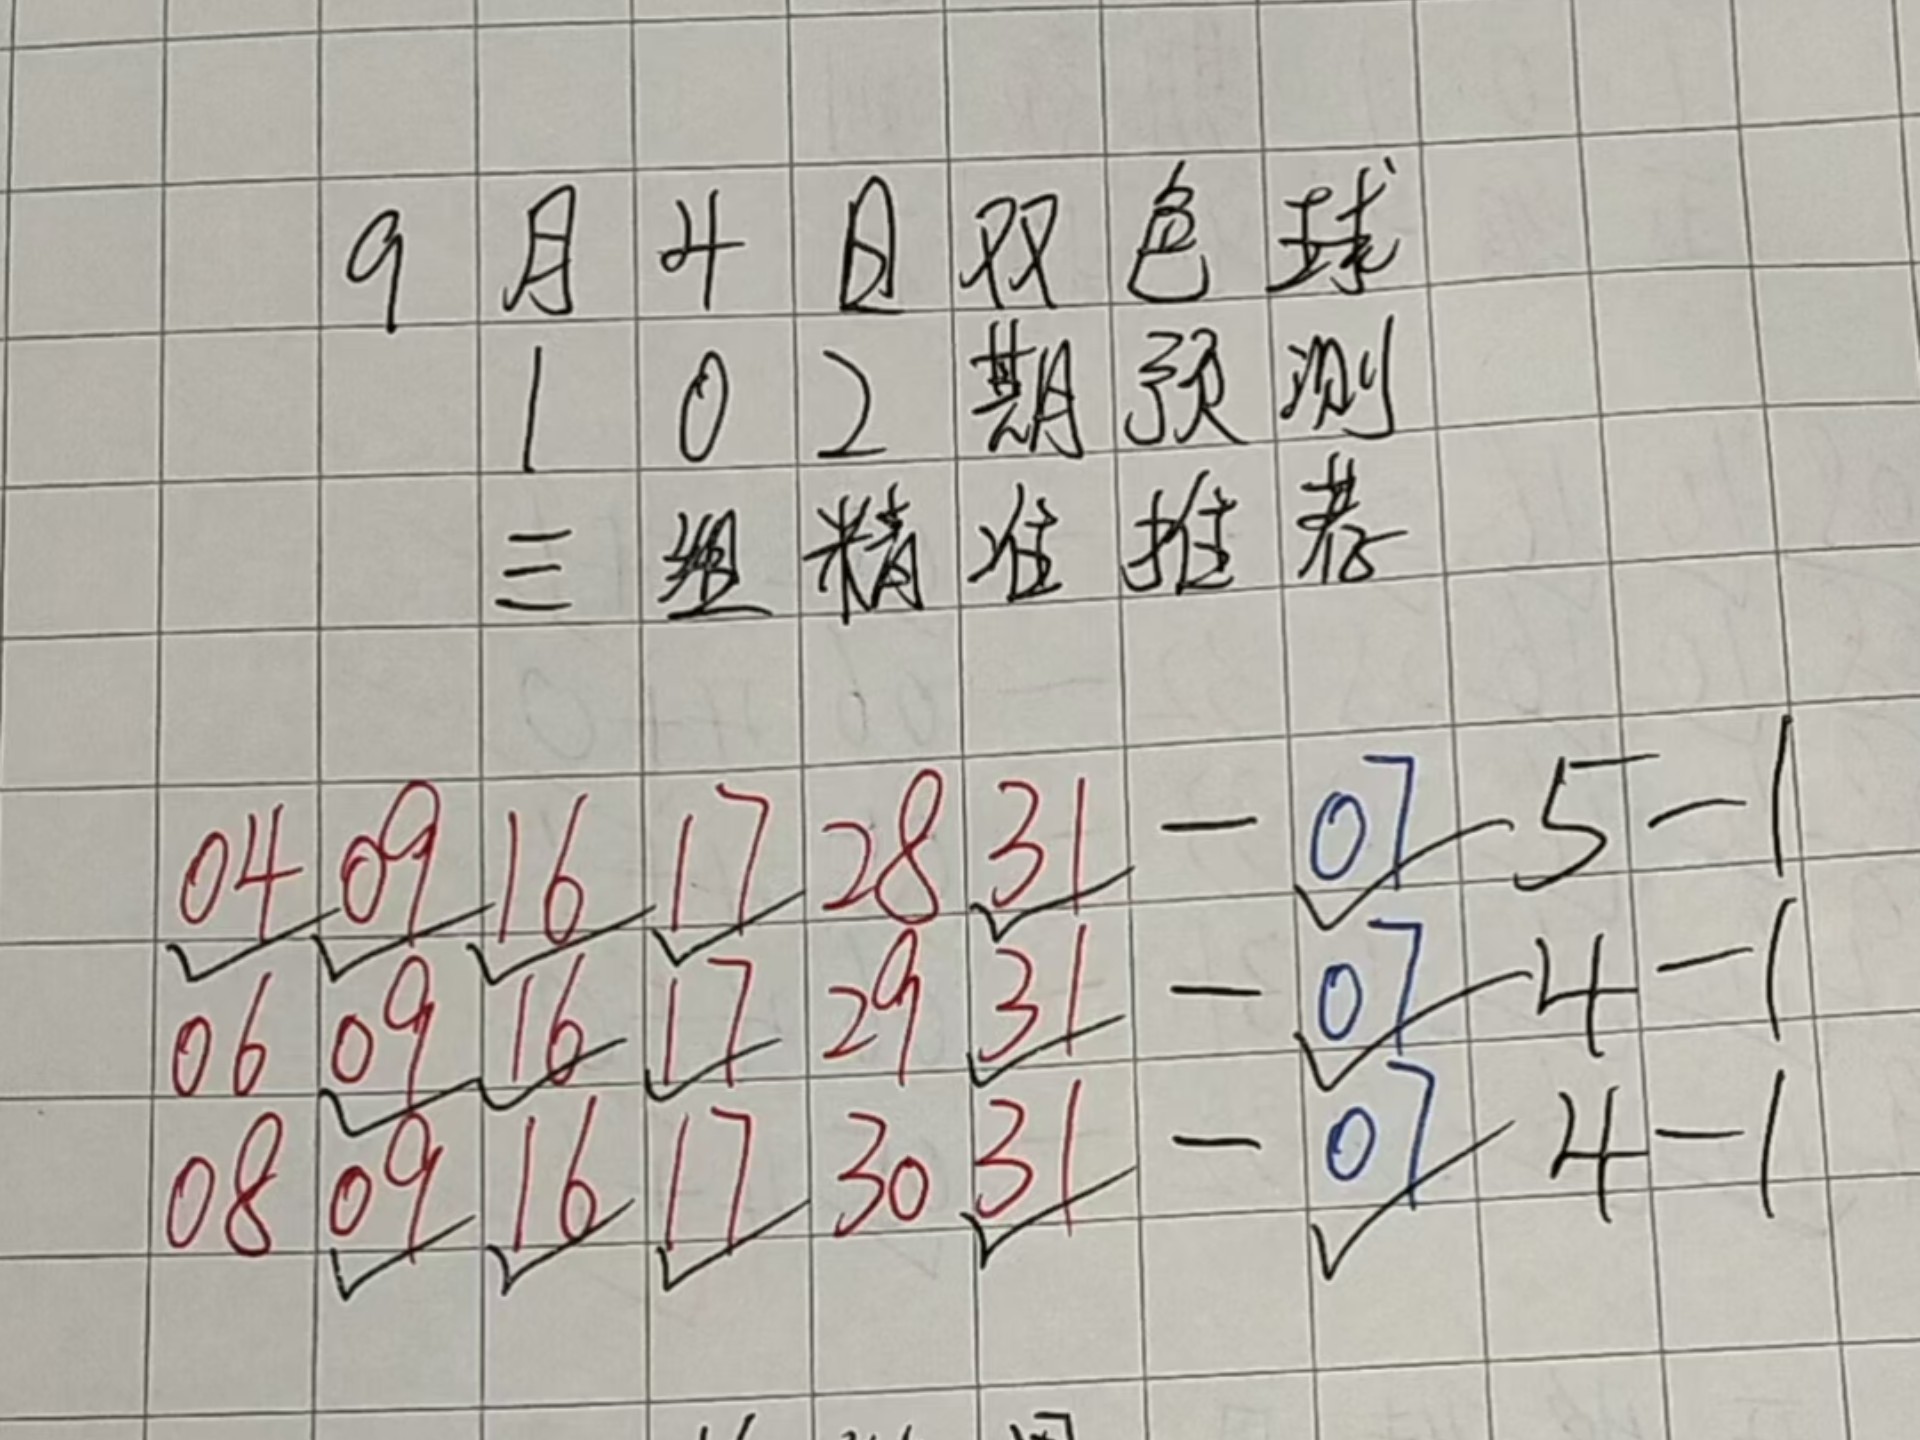 9月4日双色球
102期预测
三组精准推荐
04 09 16 17 28 31 — 07 5-1
06 09 16 17 29 31 — 07 4-1
08 09 16 17 30 31 — 07 4-1